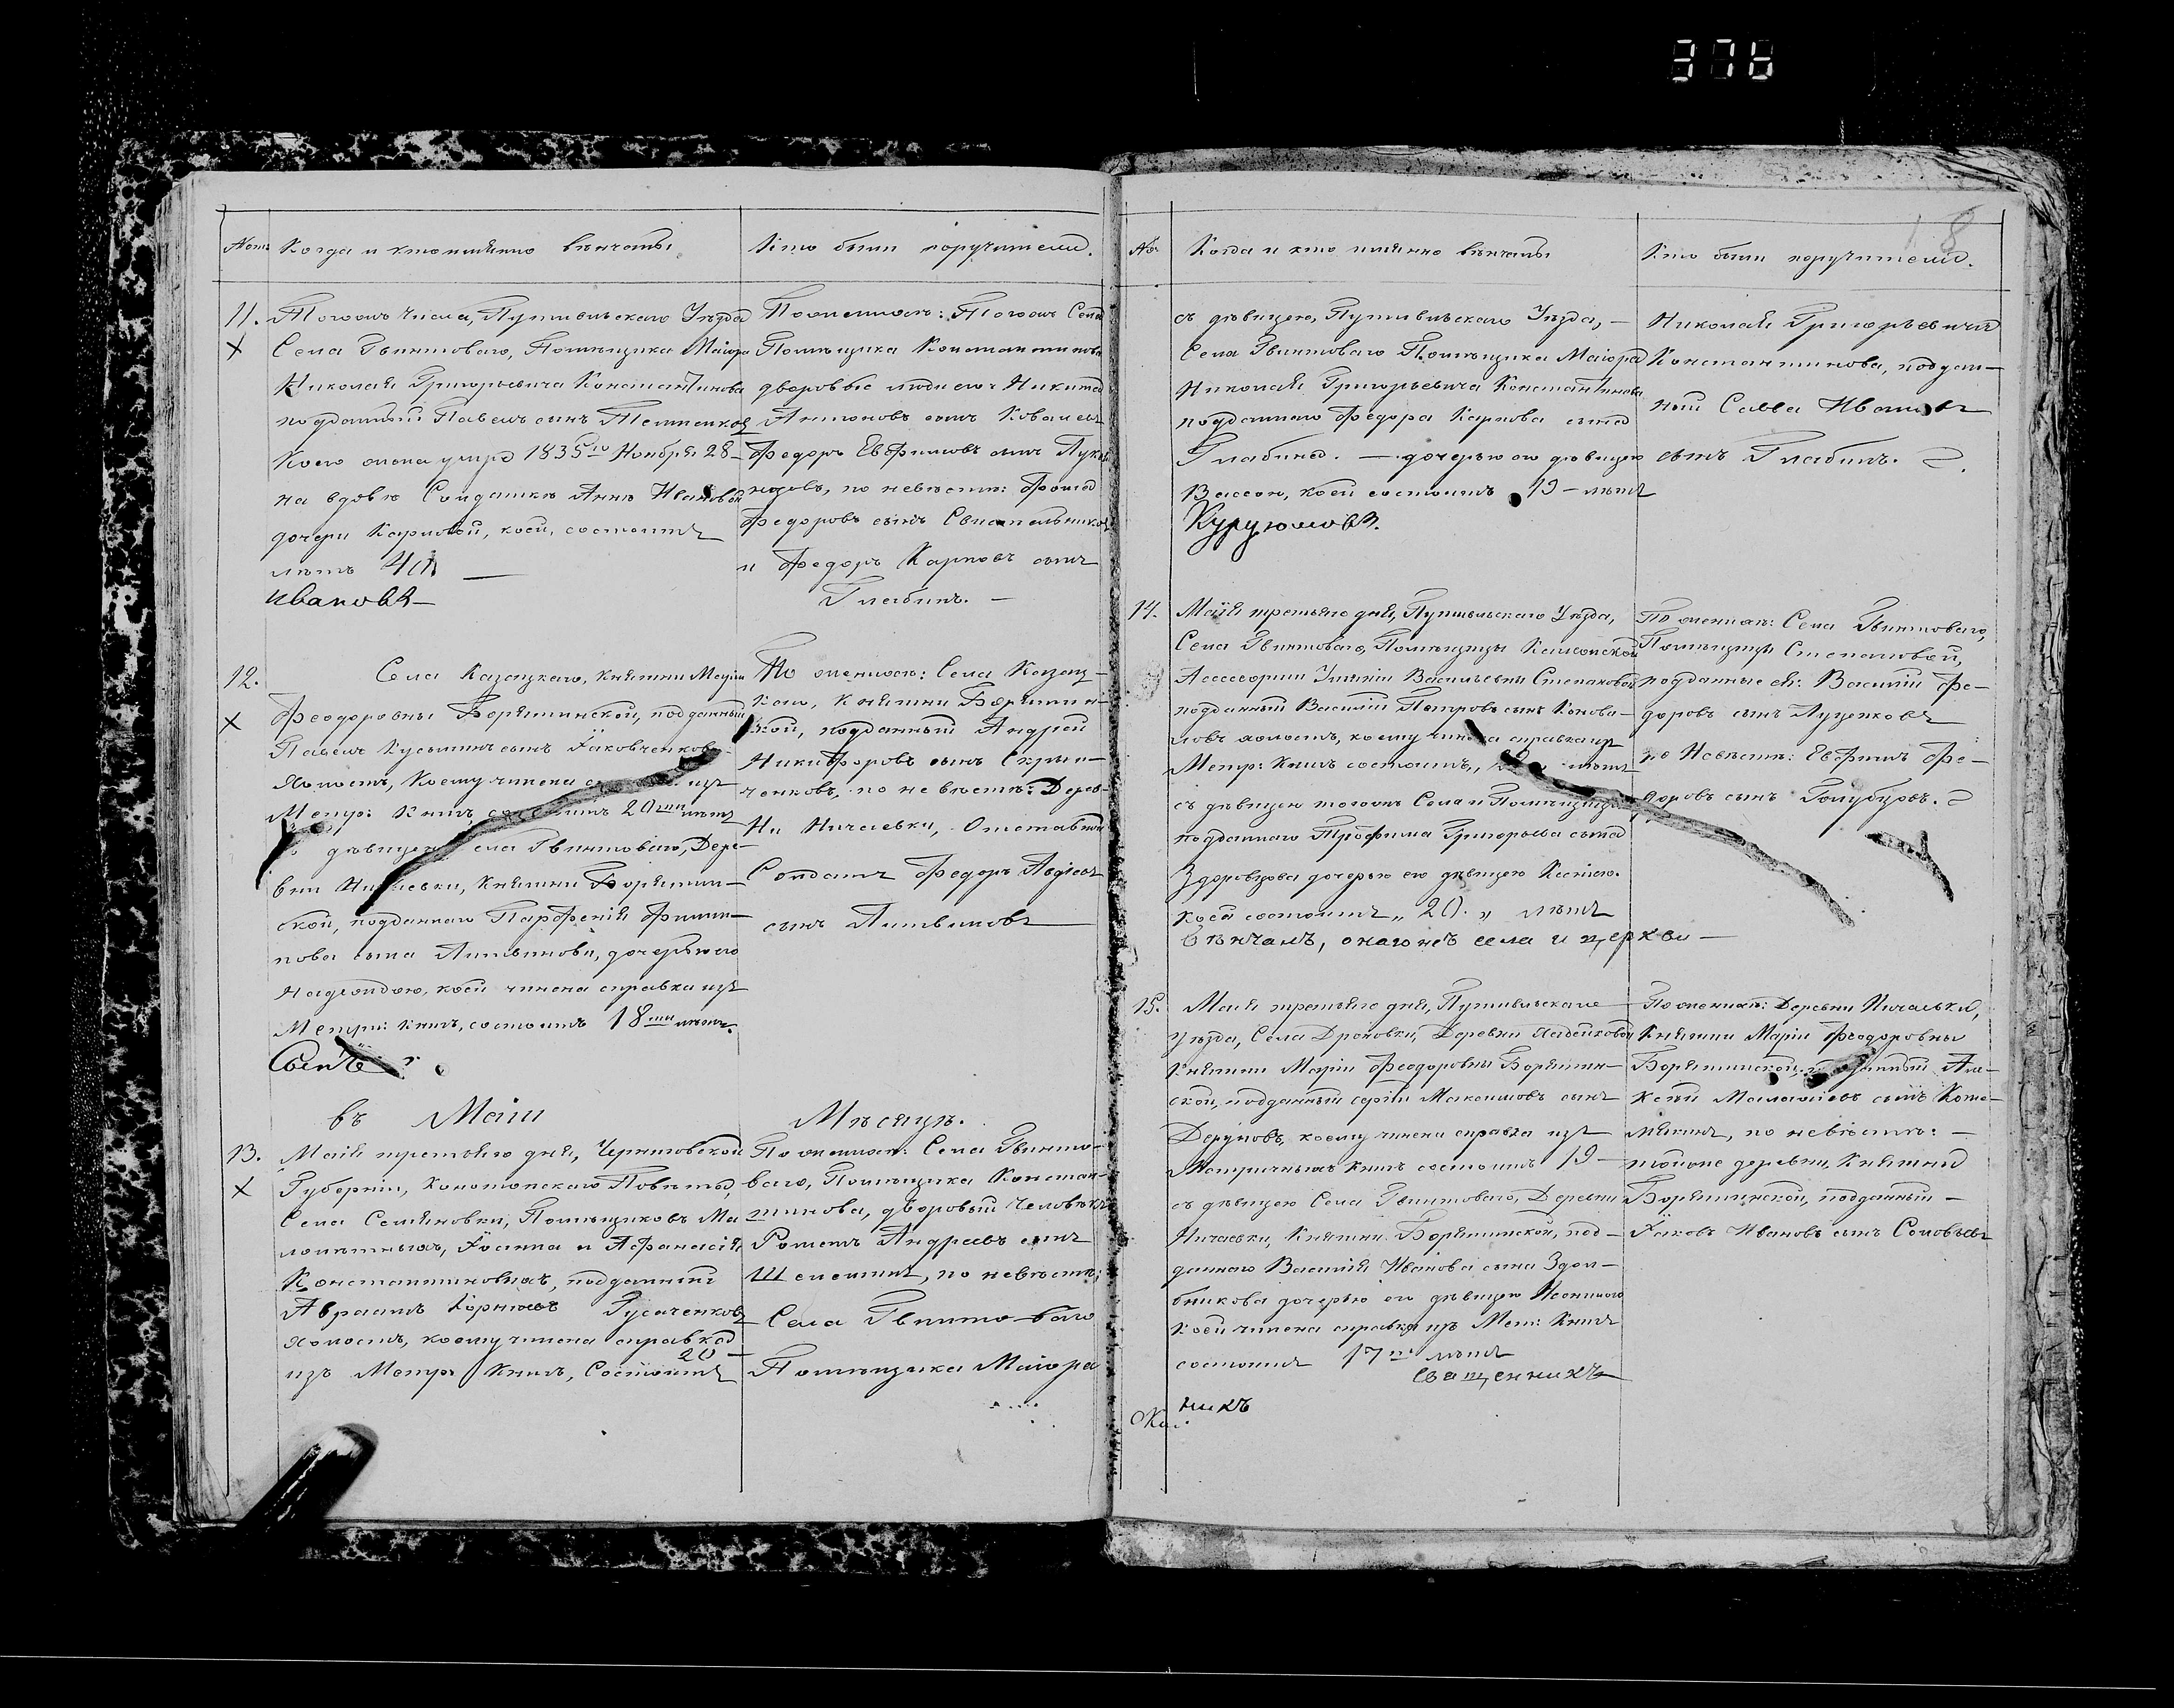 376
18
Когда и кто именно вѣнчаны
Кто были поручители.
11. Тогожъ числа, Путивльскаго Уѣзда
Села Гвинтоваго, Помѣщика Маіора
Николая Григорьевича Константинова
подданный Павелъ сынъ
коего жена умре 1835го Ноября 28
на вдовѣ Солдаткѣ Аннѣ Ивановой
дочери Карповой, коей состоитъ
лѣтъ
Ивановъ
По женихѣ: Тогожъ Села
Помѣщика Константинова
дворовые люди его Никита
Антоновъ сынъ Ковалевъ
Федоръ Евфимовъ сынъ
по невѣстѣ: Фома
Федоровъ сынъ
и Федоръ Карповъ сынъ
Глабинъ.
12. Села Казацкаго, Княжны Маріи
Феодоровны Борятинской, подданный
Павелъ Кусьминъ сынъ Яковченковъ
холостъ, коему чинена изъ
Метр: Книгъ, состоитъ 20ти лѣтъ
дѣвицею села Гвинтоваго, Дере-
вни Ничаевки, Княжны Борятин-
ской, подданнаго Парфенія Филип-
пова сына Литвинова, дочерью его
коей чинена справка изъ
Метри: книгъ, состоитъ 18ти лѣтъ.
По женихѣ: Села Казац-
каго, Княжны Борятин-
ской, подданный Андрей
Никифоровъ сынъ Скрып-
ченковъ, по невѣстѣ: Дерев-
ни Ничаевки, Отставной
Солдатъ Федоръ Авдіевъ
сынъ Литвиновъ
въ Маіи
Мѣсяцѣ.
13. Маія третьяго дня, Черниговской
Губерніи, Конотопскаго Повѣта,
Села Семяновки, Помѣщиковъ Ма
лолѣтныхъ, Іоанна и Афанасія
Константиновыхъ, подданный
Авраамъ Корніевъ Русаченковъ
холостъ, коему чинена справка
20
изъ Метр: Книгъ, Состоитъ
По женихѣ: Села Гвинто-
ваго, Помѣщика Констан-
тинова, дворовый человѣкъ
Романъ Андреевъ сынъ
Шелестинъ, по невѣстѣ:
Села Гвинто-ваго
Помѣщика Маіора
Когда и кто именно вѣнчаны
Кто были поручители.
съ дѣвицею, Путивльскаго Уѣзда,
Села Гвинтоваго Помѣщика Маіора
Николая Григорьевича Константинова
подданнаго Федора Карпова сына
Глабина. дочерью его дѣвицею
Вассою, коей состоитъ 19 лѣтъ
Николая Григорьевича
Константинова, поддан-
ный Савва Ивановъ
сынъ Глабинъ.
14. Маія третьяго дня, Путивльскаго Уѣзда,
Села Гвинтоваго, Помѣщицы Колежской
Ассесорши Васильевны Степановой
подданный Василій Петровъ сынъ Конова-
ловъ холостъ, коему чинена справка изъ
Метр: Книгъ состоитъ лѣтъ
съ дѣвицею тогожъ Села и Помѣщицы
подданнаго Трофима Григорьева сына
Здоровцова дочерью его дѣвицею Ксеніею.
коей состоитъ „20.„ лѣтъ
вѣнчалъ, села и церкви
По женихѣ: Села Гвинтоваго,
Помѣщицы Степановой,
подданные ея: Василій Фе-
доровъ сынъ Луценковъ
по Невѣстѣ: Евфимъ Фе-
доровъ сынъ Голубцовъ.
15. Маія третьяго дня, Путивльскаго
уѣзда, Села Дроновки, Деревни
Княжны Маріи Феодоровны Борятин-
ской, подданный Максимовъ сынъ
Деруновъ, коему чинена справка изъ
Метричныхъ Книгъ состоитъ 19
съ дѣвицею Села Гвинтоваго, Деревни
Ничаевки, Княжны Борятинской, под-
даннаго Василія Иванова сына Здол-
бникова дочерью его дѣвицею
коей чинена справка изъ Мет: Книгъ
состоитъ 17ть лѣтъ
священникъ
никъ
По женихѣ: Деревни Ничаевки,
Княжны Маріи Феодоровны
Борятинской, подданный Але-
ксѣй сынъ
по невѣстѣ:
тойже деревни, Княжны
Борятинской, подданный
Яковъ Ивановъ сынъ Соловьевъ